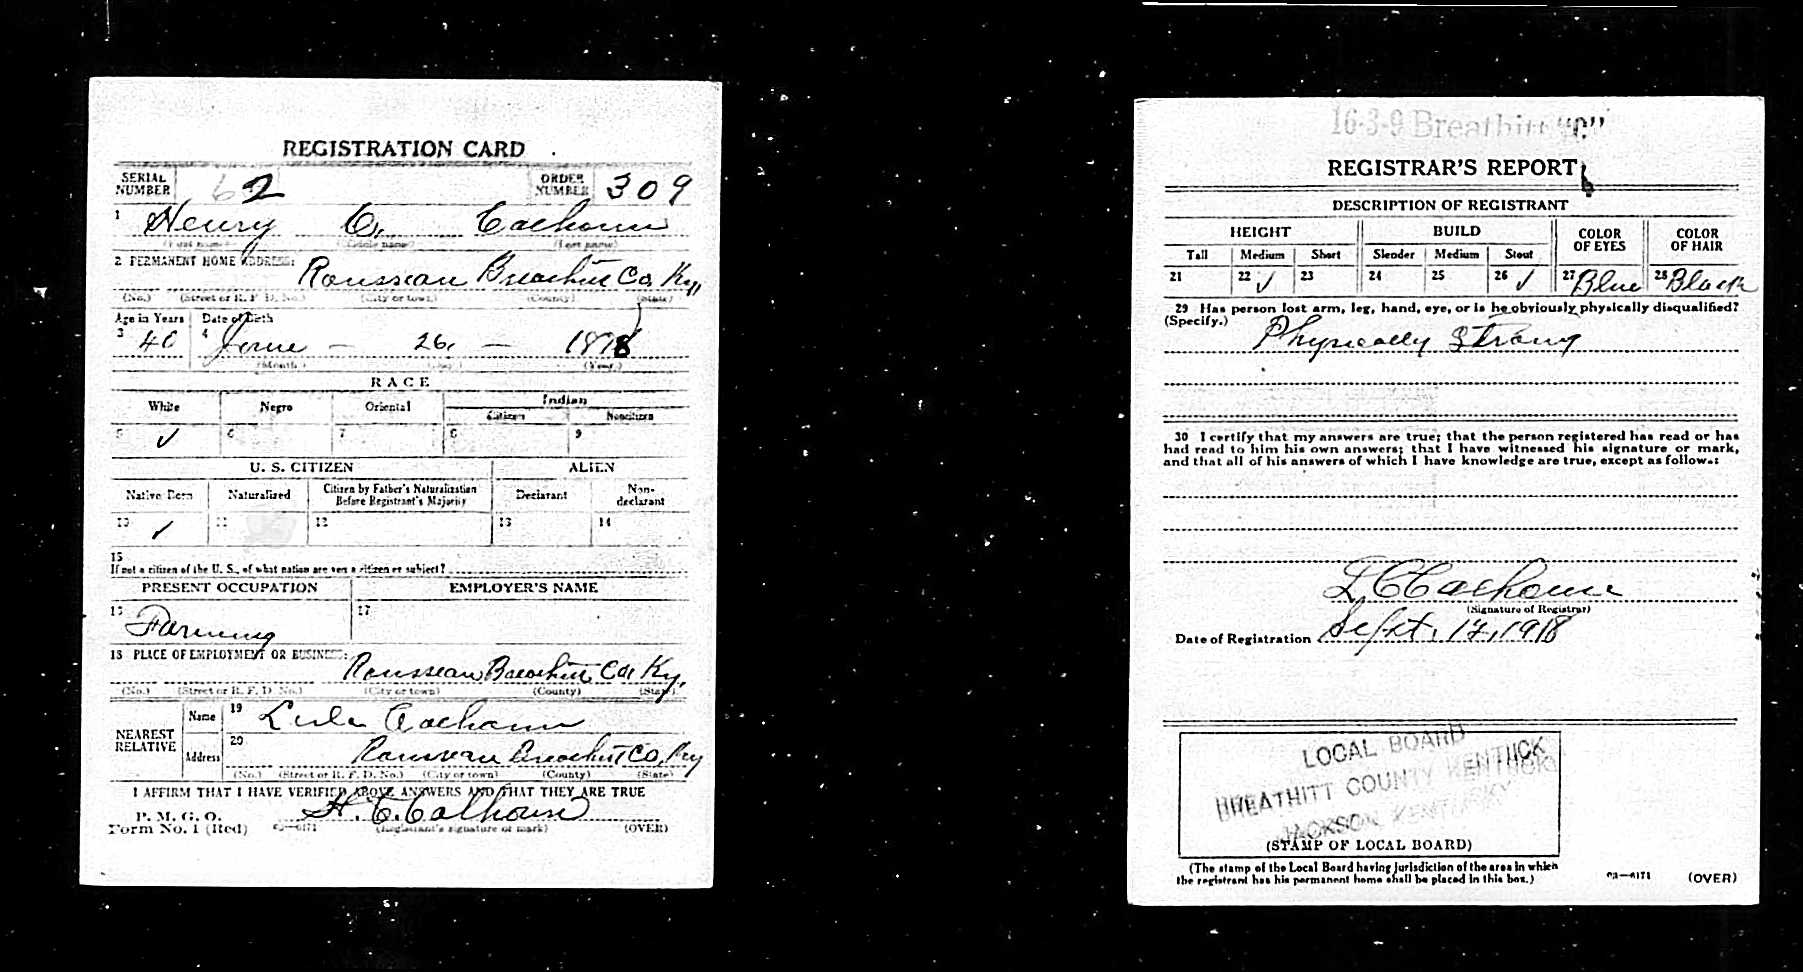 REGISTRATION CARD
SERIAL NUMBER 62 ORDER NUMBER 309
1 Henry C. Calhoun
(First name) (Middle name) (Last name)
2 PERMANENT HOME ADDRESS: Rousseau Breathitt Co, Ky,
(No.) (Street or R. F. D. No.) (City or town) (County) (State)
Age in Years Date of Birth
3 40 4 June — 26, — 1878
(Month) (Day) (Year)
RACE
White Negro Oriental Indian
Citizen Noncitizen
5 ✓ 6 7 8 9
U. S. CITIZEN ALIEN
Native Born Naturalized Citizen by Father's Naturalization Before Registrant's Majority Declarant Non-declarant
10 ✓ 11 12 13 14
15
If not a citizen of the U. S., of what nation are you a citizen or subject?
PRESENT OCCUPATION EMPLOYER'S NAME
16 Farming 17
18 PLACE OF EMPLOYMENT OR BUSINESS:
Rousseau Breathitt, Co, Ky,
(No.) (Street or R. F. D. No.) (City or town) (County) (State)
NEAREST RELATIVE
Name 19 Calhoun
Address 20 Rousseau Breathitt Co, Ky
(No.) (Street or R. F. D. No.) (City or town) (County) (State)
I AFFIRM THAT I HAVE VERIFIED ABOVE ANSWERS AND THAT THEY ARE TRUE
H. C. Calhoun
P. M. G. O.
Form No. 1 (Red) 03—6171 (Registrant's signature or mark) (OVER)
16-3-9 Breathitt "C"
REGISTRAR'S REPORT
DESCRIPTION OF REGISTRANT
HEIGHT BUILD COLOR OF EYES COLOR OF HAIR
Tall Medium Short Slender Medium Stout
21 22 ✓ 23 24 25 26 ✓ 27 Blue 28 Black
29 Has person lost arm, leg, hand, eye, or is he obviously physically disqualified?
(Specify.)
Physically Strong
30 I certify that my answers are true; that the person registered has read or has
had read to him his own answers; that I have witnessed his signature or mark,
and that all of his answers of which I have knowledge are true, except as follows:
L C Calhoun
(Signature of Registrar)
Date of Registration Sept. 12, 1918
LOCAL BOARD
BREATHITT COUNTY KENTUCKY
JACKSON KENTUCKY
(STAMP OF LOCAL BOARD)
(The stamp of the Local Board having jurisdiction of the area in which
the registrant has his permanent home shall be placed in this box.)
03—6171 (OVER)